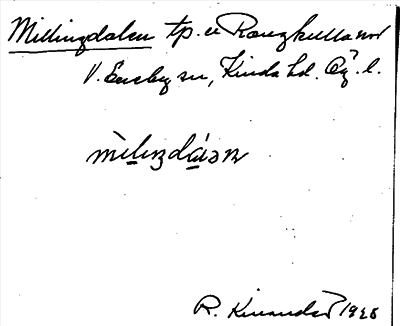 Millingdalen tp. u Rangkulla nr
V. Eneby sn, Kinda hd. Ög. l.
mìlıŋdáːən
R. Kinander 1928